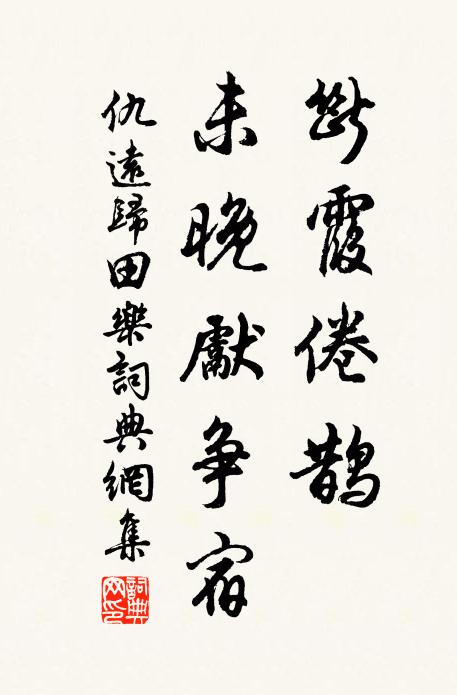 斷霞倦鵲
未晚獻争宿
仇遠歸田樂詞典網集
詞典
网印